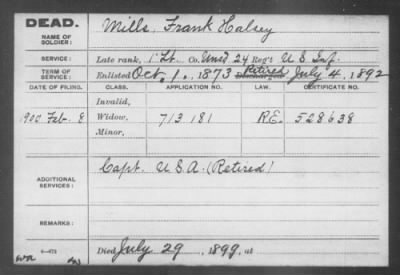 DEAD.
Mills, Frank Halsey
NAME OF SOLDIER:
SERVICE: Late rank, 1 Lt. Co. Unas'd 24 Reg't U S Inf.
TERM OF SERVICE: Enlisted Oct. 1, 1873 Discharged Retired July 4, 1892
DATE OF FILING. CLASS. APPLICATION NO. LAW. CERTIFICATE NO.
Invalid,
1900 Feb. 8 Widow, 713 181 R.E. 528638
Minor,
ADDITIONAL SERVICES: Capt. U S A. (Retired)
REMARKS:
Died July 29, 1899, at